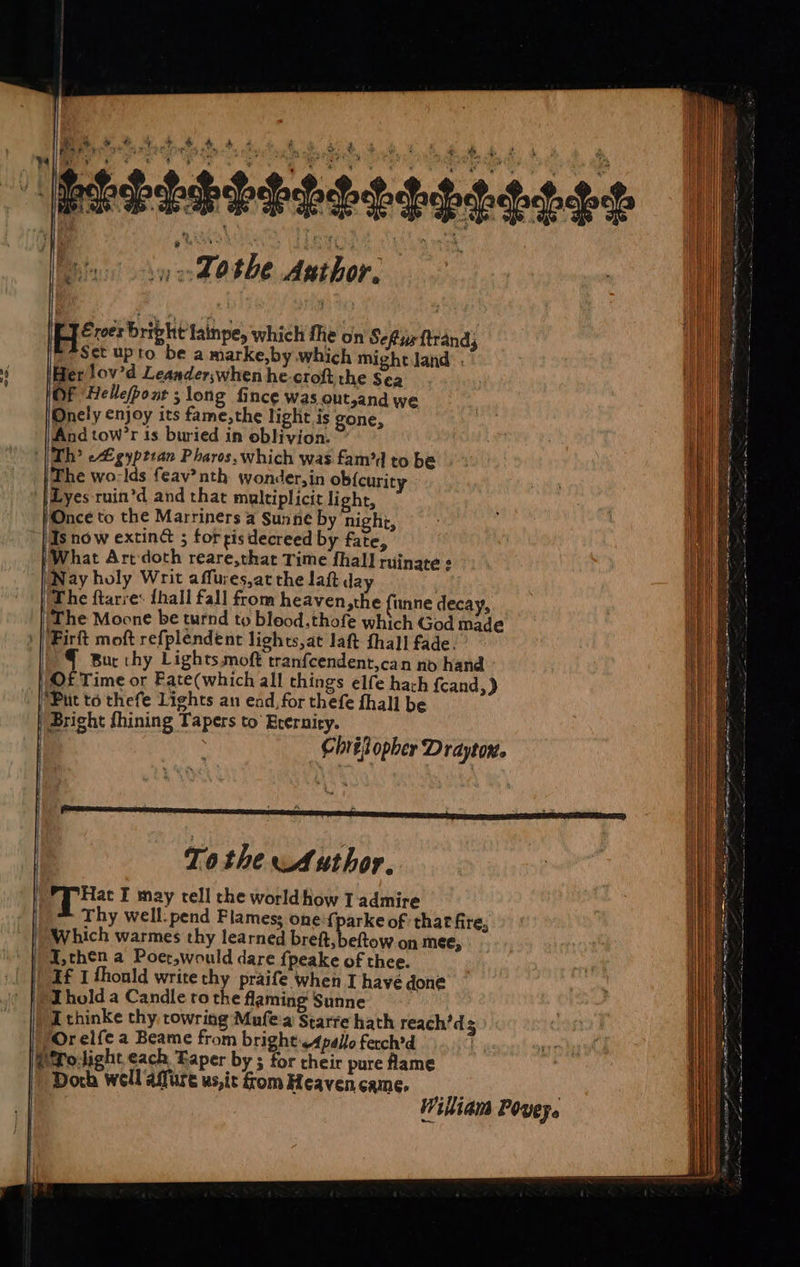 To the Author.
HEroes bright lampe, which ſhe on Seſtus ſtrand,
Set up to be a marke, by which might land
Her lov'd Leander, when he croſt the Sea
Of Helleſpont; long ſince was out, and we
Onely enjoy its fame, the light is gone,
And tow'r is buried in oblivion.
Th' Ægyptian Pharos, which was fam'd to be
The worlds ſeav'nth wonder, in obſcurity
Lyes ruin'd and that multiplicit light,
Once to the Marriners a Sunne by night,
Is now extinct; for 'tis decreed by fate,
What Art doth reare, that Time ſhall ruinate:
Nay holy Writ aſſures, at the laſt day
The ſtarres ſhall fall from heaven, the ſunne decay,
The Moone be turnd to blood, thoſe which God made
Firſt moſt reſplendent lights, at laſt ſhall fade.
¶ But thy Lights moſt tranſcendent, can no hand
Of Time or Fate (which all things elſe hath ſcand,)
Put to theſe Lights an end, for theſe ſhall be
Bright ſhining Tapers to Eternity.
Chriſtopher Drayton.
To the Author.
THat I may tell the world how I admire
Thy well-pend Flames; one ſparke of that fire,
Which warmes thy learned breſt, beſtow on mee,
I, then a Poet, would dare ſpeake of thee.
If I ſhould write thy praiſe when I have done
I hold a Candle to the flaming Sunne
I thinke thy towring Muſe a Starre hath reach'd;
Or elſe a Beame from bright Apollo fetch'd
To light each Taper by; for their pure flame
Doth well aſſure us, it from Heaven came.
William Povey.